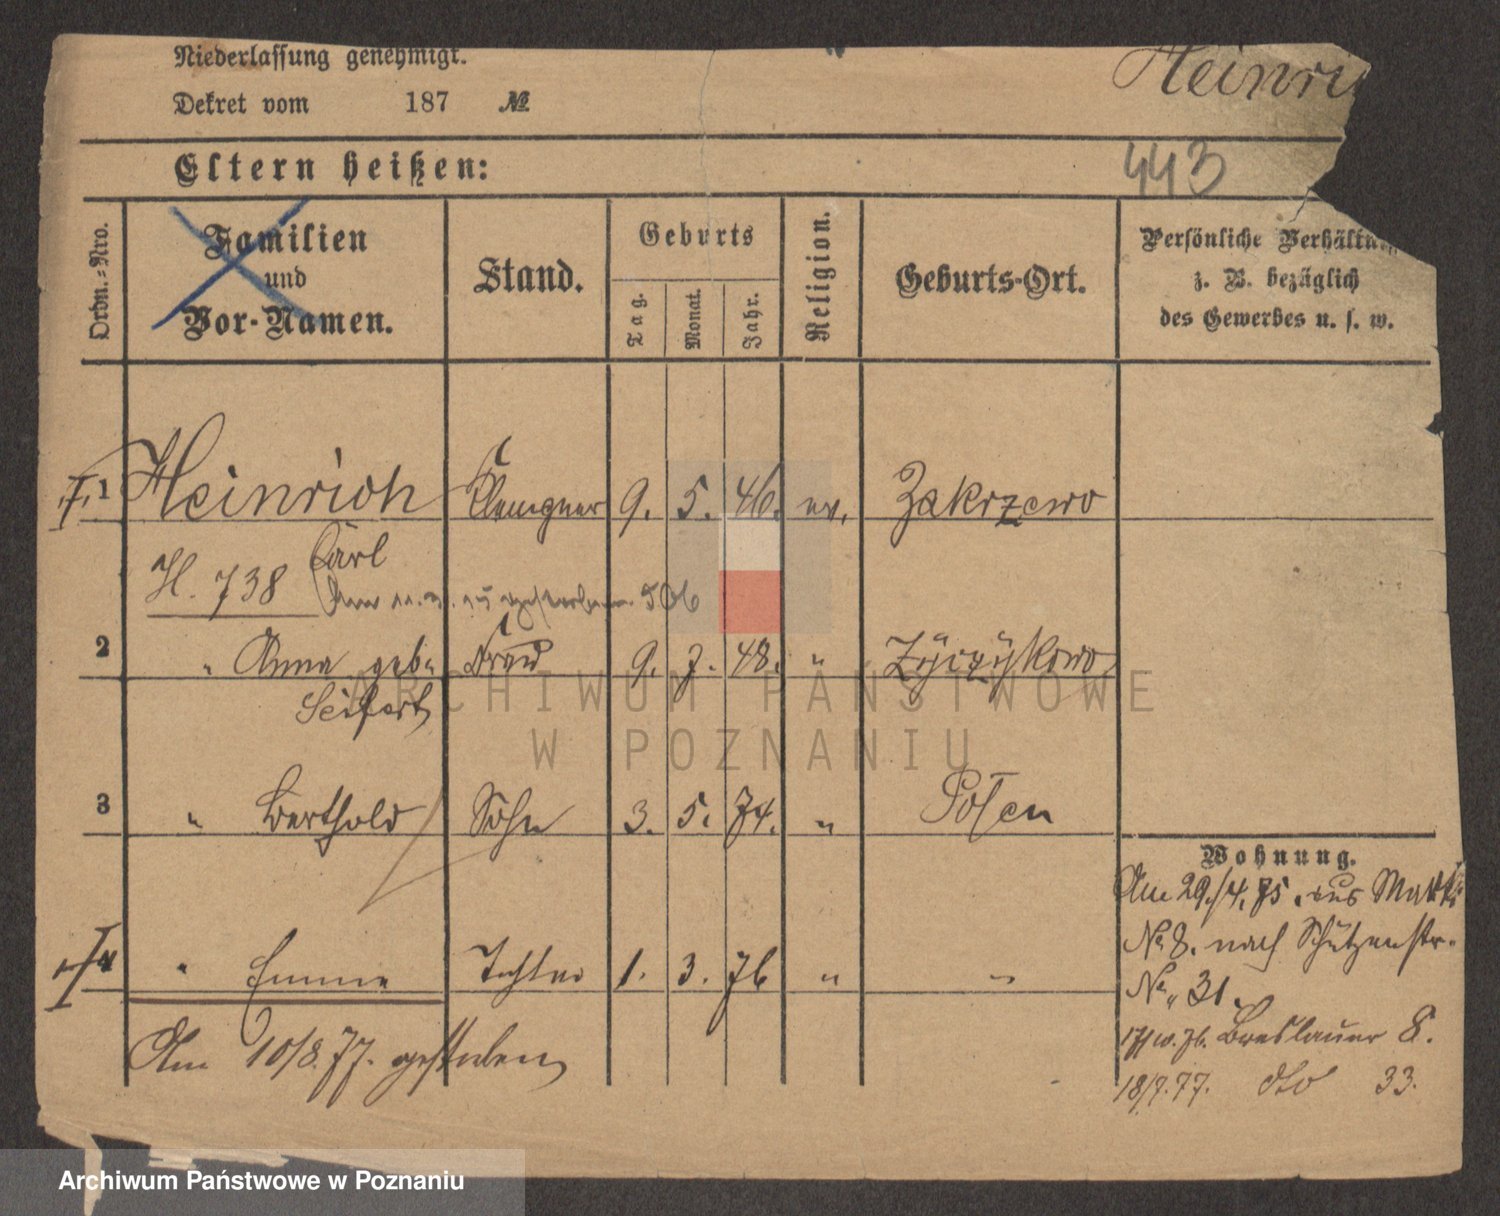 Niederlassung genehmigt.
Dekret vom 187 №
Heinri
Eltern heißen:
443
Ordn.-Nro.
Familien und Vor-Namen.
Stand.
Geburts
Tag.
Monat.
Jahr.
Religion.
Geburts-Ort.
Persönliche Verhältn
z. B. bezüglich
des Gewerbes u. s. w.
1 Heinrich Klempner 9. 5. 46. ev. Zakrzewo
Carl
H. 738
506
2 " Anna geb. Frau 9. 7. 48. " Życzykowo
Seifert
3 " Berthold Sohn 3. 5. 74. " Posen
Wohnung.
Am 29./4. 75. aus Markt
No 8. nach Schützenstr.
No 31.
4 " Emma Tochter 1. 3. 76 " "
Am 10/8. 77. gestorben
76. Breslauer 8.
18/7. 77. dto 33.
ARCHIWUM PAŃSTWOWE
W POZNANIU
Archiwum Państwowe w Poznaniu